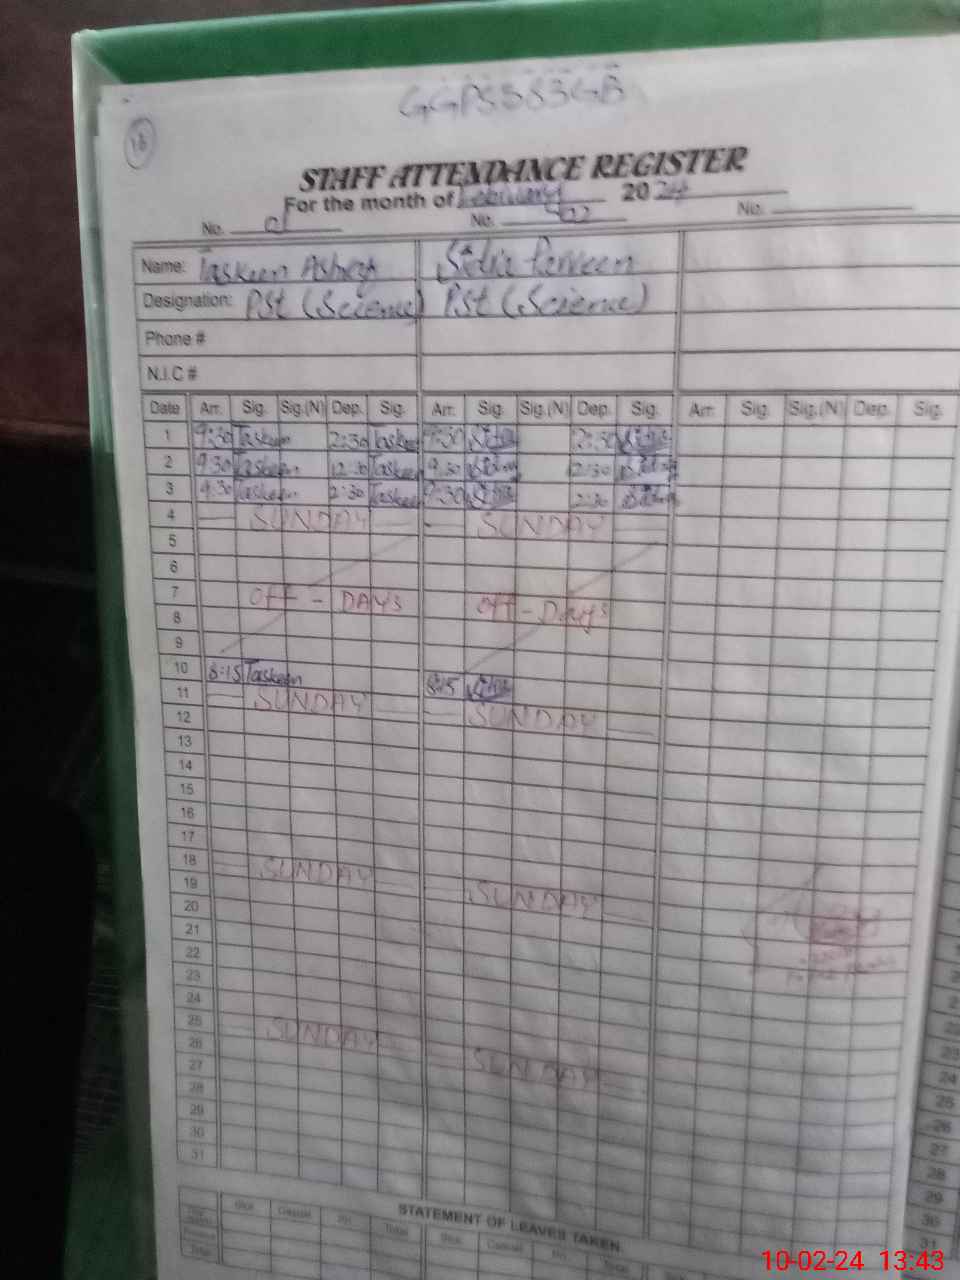 18
STAFF ATTENDANCE REGISTER
For the month of February 2024
No. 01 No. No.
Name: Taskeen Ashraf Sidra Perveen
Designation: PSt (Science) PSt (Science)
Phone #
N.I.C #
Date Arr. Sig. Sig.(N) Dep. Sig. Arr. Sig. Sig.(N) Dep. Sig. Arr. Sig. Sig.(N) Dep. Sig.
1 9:30 Taskeen 2:30 Taskeen 9:30 Sidra 2:30 Sidra
2 9:30 Taskeen 12:30 Taskeen 9:30 Sidra 12:30 Sidra
3 9:30 Taskeen 2:30 Taskeen 9:30 Sidra 2:30 Sidra
4 SUNDAY SUNDAY
5
6
7 OFF - DAYS OFF - Days
8
9
10 8:15 Taskeen 8:15 Sidra
11 SUNDAY SUNDAY
12
13
14
15
16
17
18 SUNDAY SUNDAY
19
20
21
22
23
24
25 SUNDAY SUNDAY
26
27
28
29
30
31
STATEMENT OF LEAVES TAKEN
Casual Total Casual Total
Total
23
24
25
26
27
28
29
30
31
10-02-24 13:43